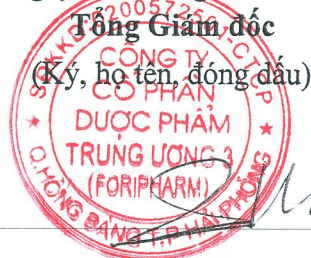 Tổng Giám đốc
(Ký, họ tên, đóng dấu)
CÔNG TY
CỔ PHẦN
DƯỢC PHẨM
TRUNG ƯƠNG 3
(FORIPHARM)
Q.HỒNG BÀNG T.P HẢI PHÒNG